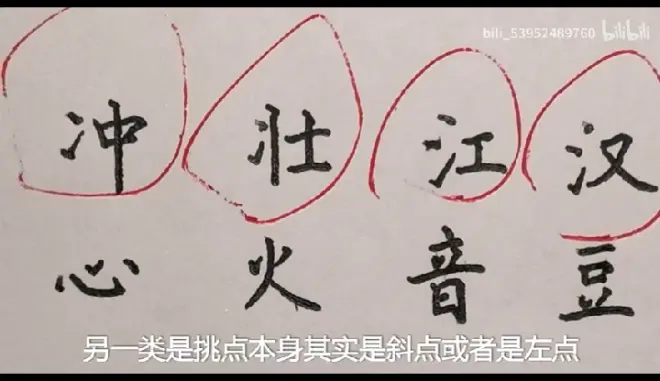 bili_53952489760 bilibili
冲 壮 江 汉
心 火 音 豆
另一类是挑点本身其实是斜点或者是左点